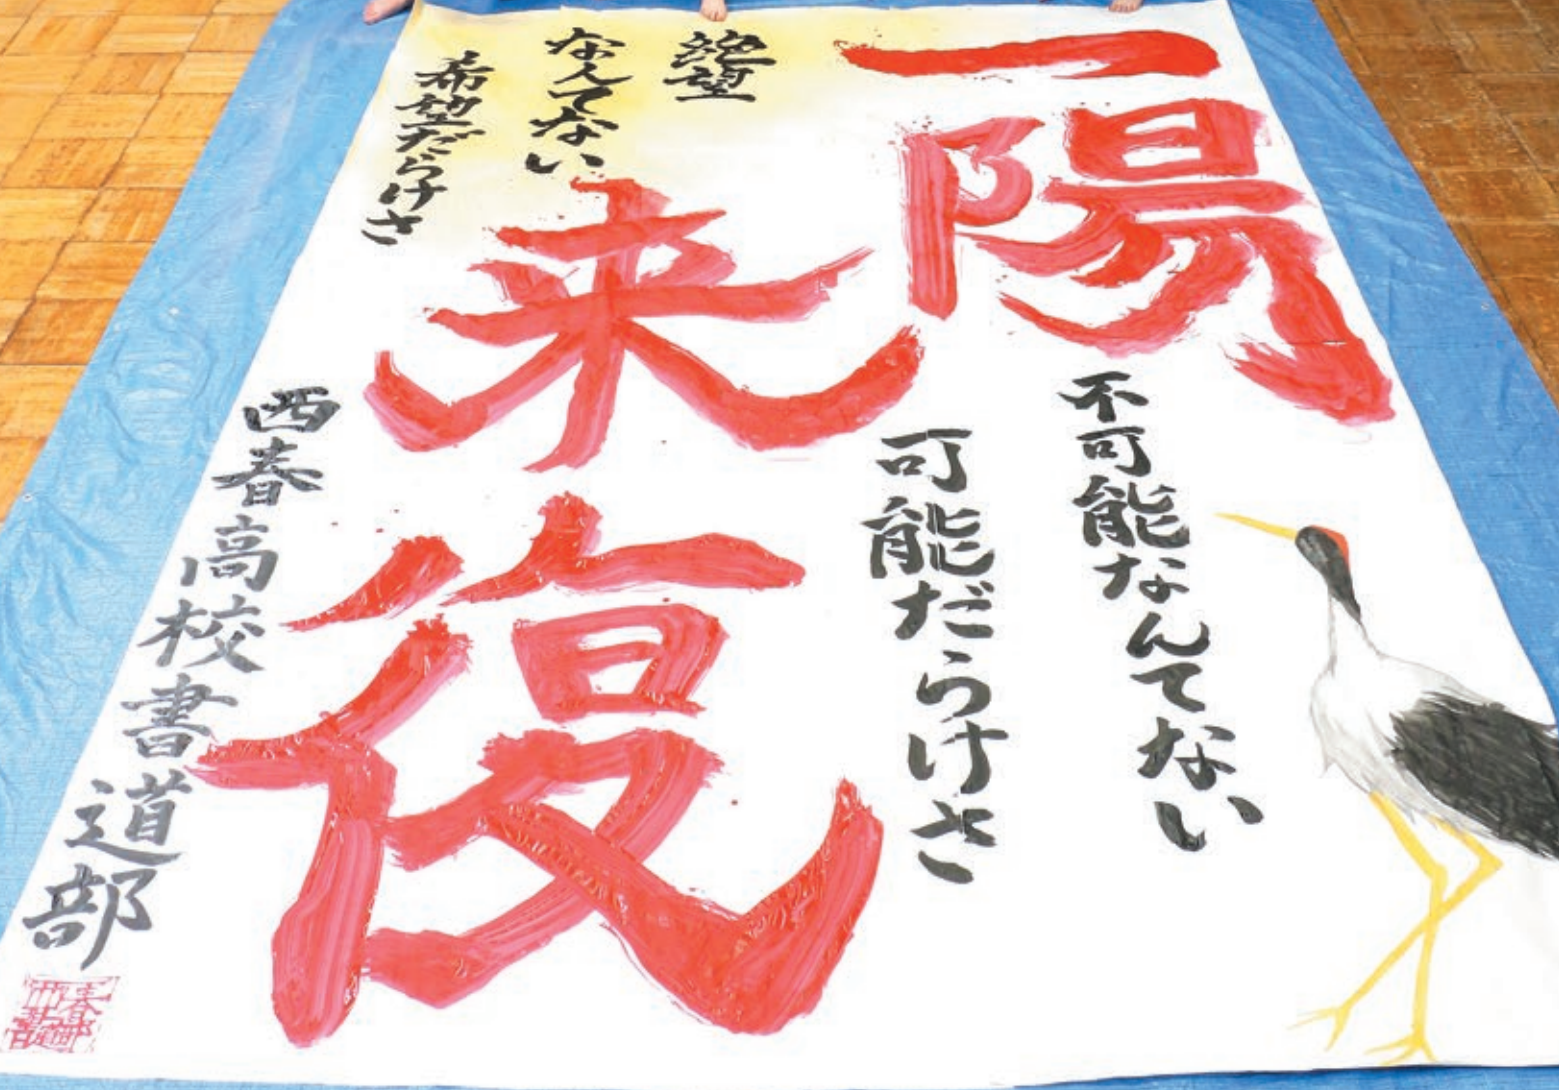 一陽
来復
不可能なんてない
可能だらけさ
絶望
なんてない
希望だらけさ
西春高校書道部